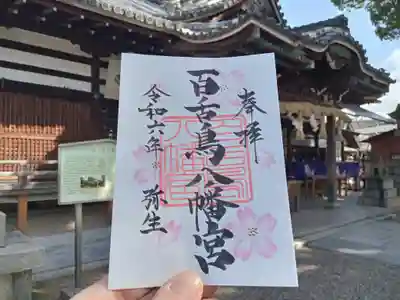 奉拝
百舌鳥八幡宮
令和六年
弥生